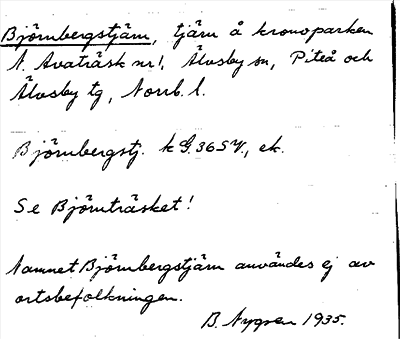 Björnbergstjärn, tjärn å kronoparken
N. Avaträsk nr 1, Älvsby sn, Piteå och
Älvsby tg, Norrb. l.
Björnbergstj. k G. 36 SV., ek.
Se Björnträsket!
Namnet Björnbergstjärn användes ej av
ortsbefolkningen.
B. Nygren 1935.